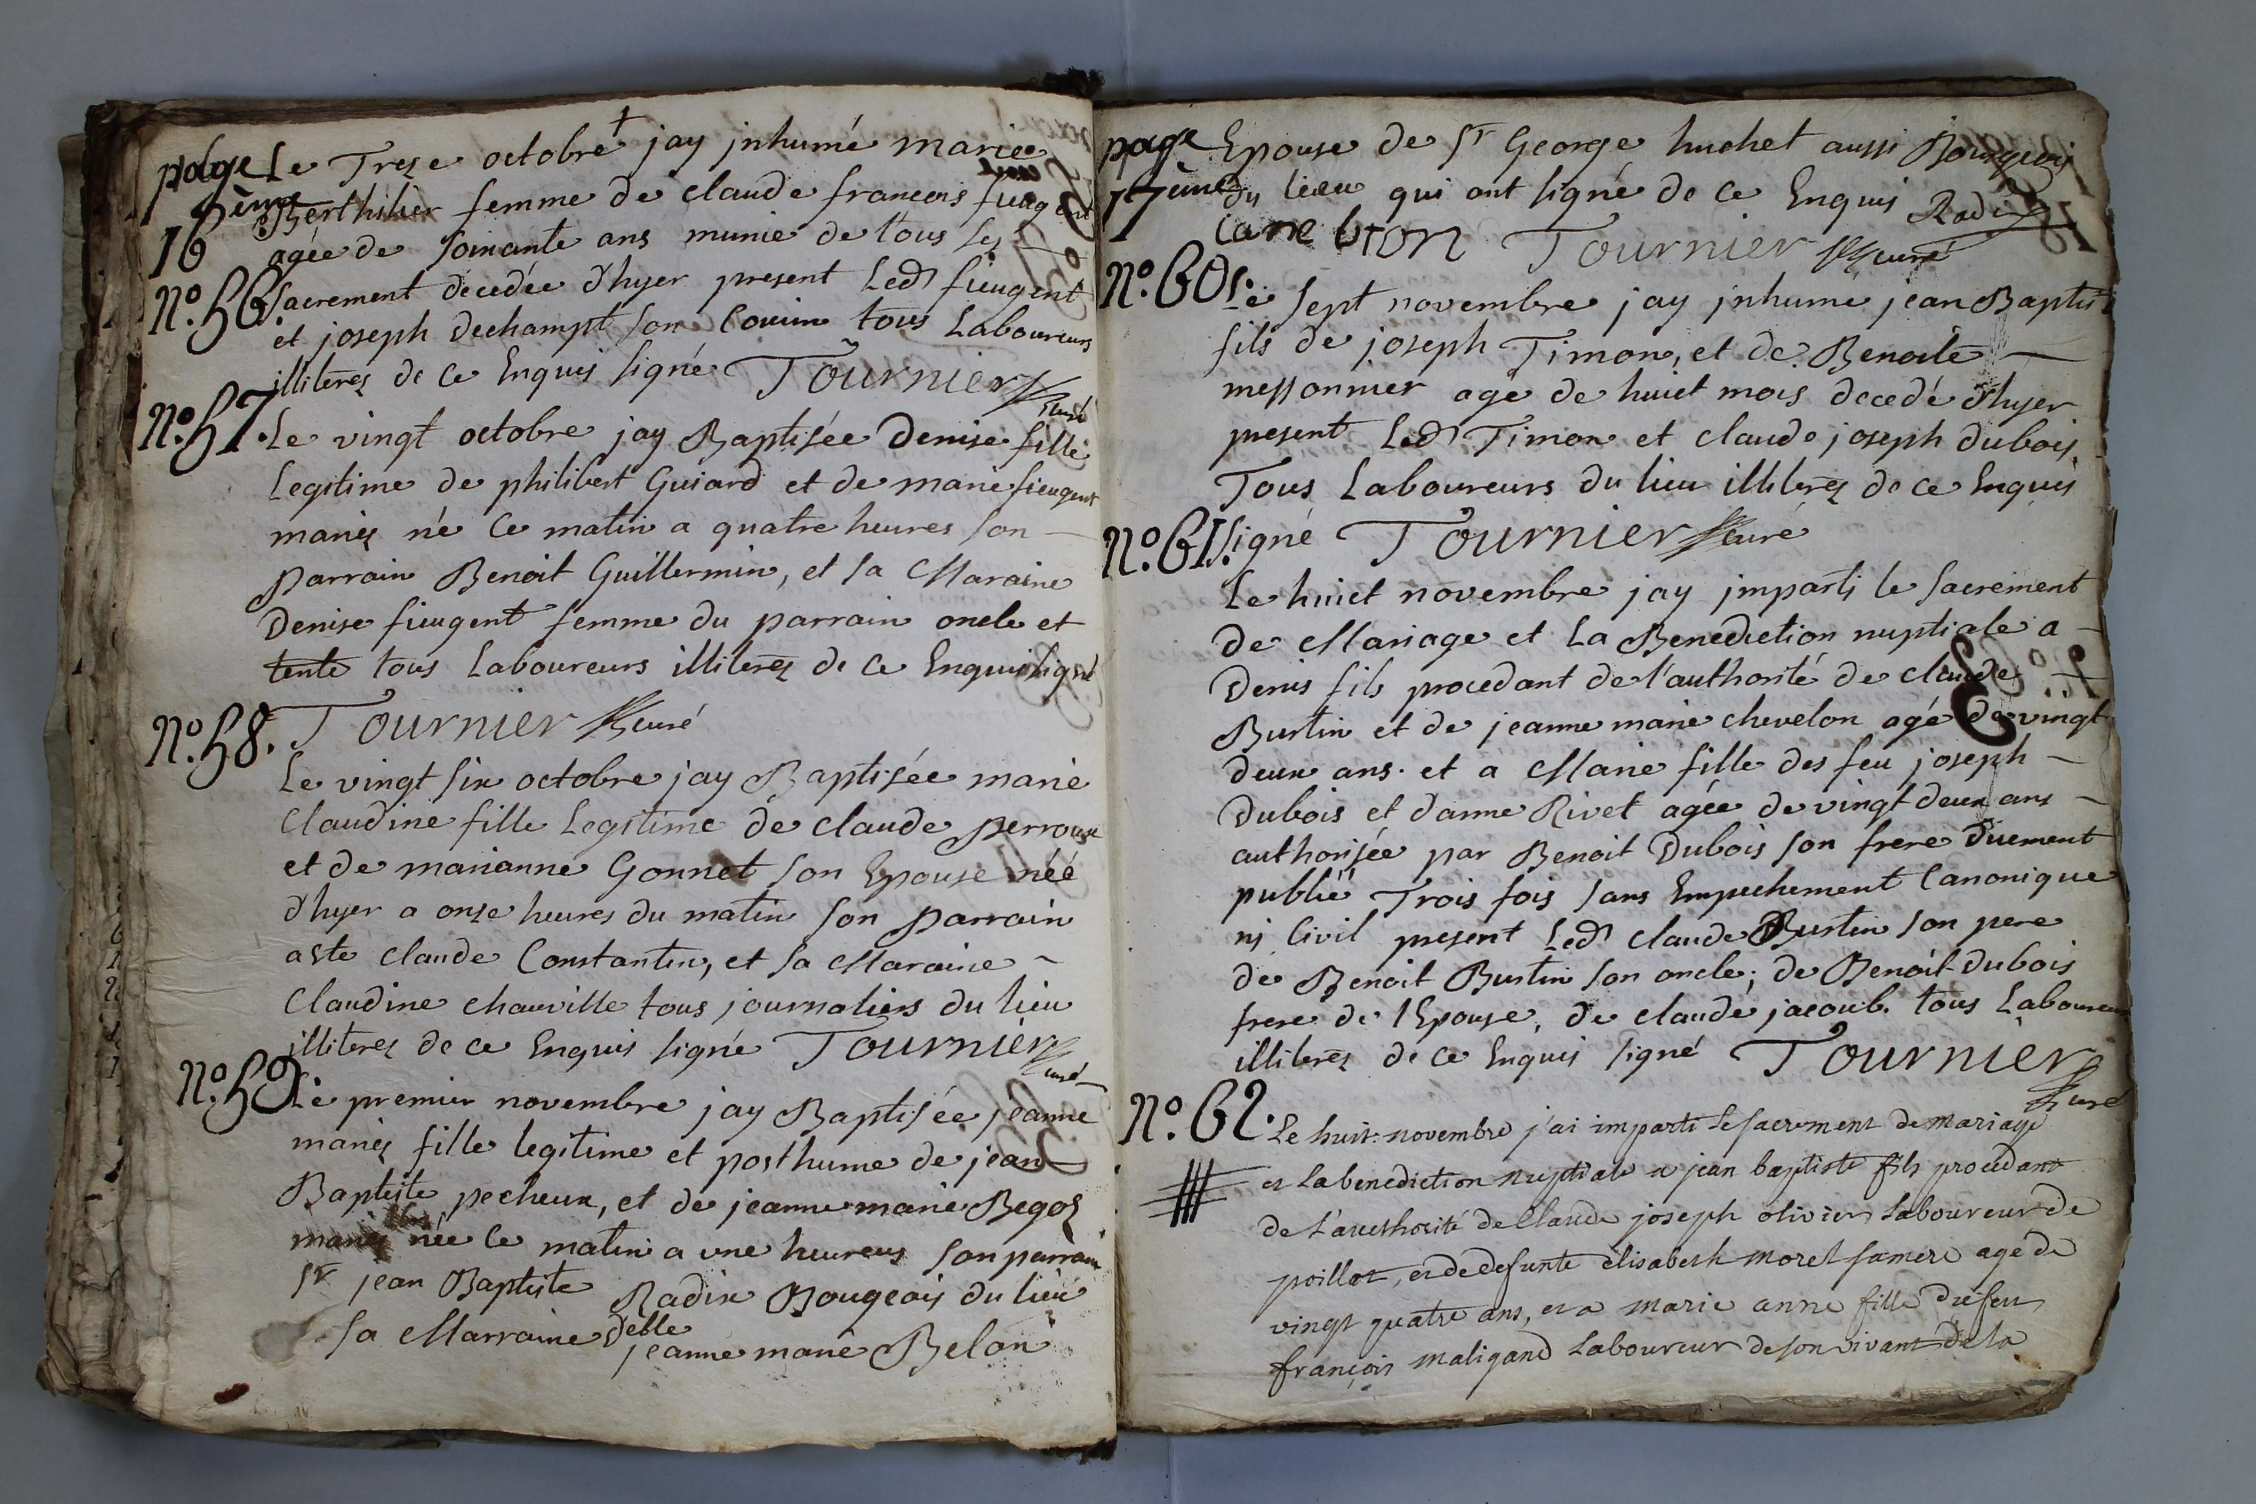 page Le Treze octobre jay jnhumé marie
16ème Berthilier femme de claude francois fieugent
agée de soixante ans munie de tous ses
No. 56. Sacrement décedée d'hyer present Led fieugent
et joseph dechampt son Cousin tous Laboureurs
illiterez de ce Enquis signé Tournier curé
No. 57. Le vingt octobre jay Baptisée denise fille
Legitime de philibert Guiard et de marie fieugent
mariez né ce matin a quatre heures son
parrain Benoit Guillermin, et sa Maraine
Denise fieugent femme du parrain oncle et
tente tous Laboureurs illiterez de ce Enquis signé
No. 58. Tournier curé
Le vingt six octobre jay Baptisée marie
Claudine fille Legitime de claude perroux
et de marianne Gonnet son Epouse néé
d'hyer a onze heures du matin son parrain
aste claude Constantin, et sa Maraine
Claudine chauville tous journaliers du lieu
illiterez de ce Enquis signé Tournier curé
No. 59. Le premier novembre jay Baptisée jeanne
mariez fille legitime et posthume de jean
Baptiste pecheux, et de jeanne marie Begoz
mariez née ce matin a une heureus son parrain
Sr jean Baptiste Radix Bougeois du lieu
sa Marraine delle jeanne marie Belon
page Epouse de Sr George huchet aussi Bourgeois
17ème du lieu qui ont signé de ce Enquis Radix
Tournier curé
No. 60. Le sept novembre jay jnhumé jean Baptist
fils de joseph Timon, et de Benoite
messonnier agé de huict mois decedé d'hyer
present Led Timon et claude joseph dubois
Tous Laboureurs du lieu illiterez de ce Enquis
No. 61. signé Tournier curé
Le huict novembre jay jmparti le sacrement
de Mariage et La Benediction nuptiale a
Denis fils procedant de l'authorité de claude
Burtin et de jeanne marie chevelon agé de vingt
deux ans. et a Marie fille des feu joseph
Dubois et danne Rivet agée de vingt deux ans
authorisée par Benoit Dubois son frere duement
publié Trois fois sans Empechement Canonique
nj Civil present Led claude Burtin son pere
de Benoit Burtin son oncle; de Benoit dubois
frere de l'Epouse, de claude jacoub. tous Laboureur
illiterez de ce Enquis signé Tournier curé
No. 62. Le huit novembre j'ai imparti le sacrement de mariage
et la benediction nuptiale a jean baptiste fils procedant
de l'authorité de Claude joseph olivier laboureur de
poillat, et de defunte elisabeth morel sa mere agé de
vingt quatre ans, et a marie anne fille du feu
françois maligand Laboureur de son vivant de la